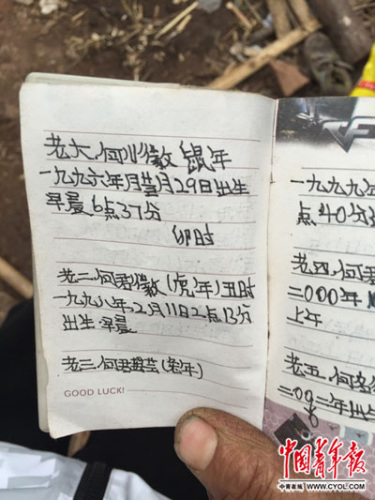 老大.何川徽 鼠年
一九九六年月 月29日出生
早晨6点37分
卯时
老二.何君徽(虎年)丑时
一九九八年2月11日2点13分
出生 早晨
老三.何君 (兔年)
GOOD LUCK!
一九九九年
点40分
老四.何君
二000年
上午
老五.何
二0 二年出生
中国青年报
中青在线 WWW.CYOL.COM